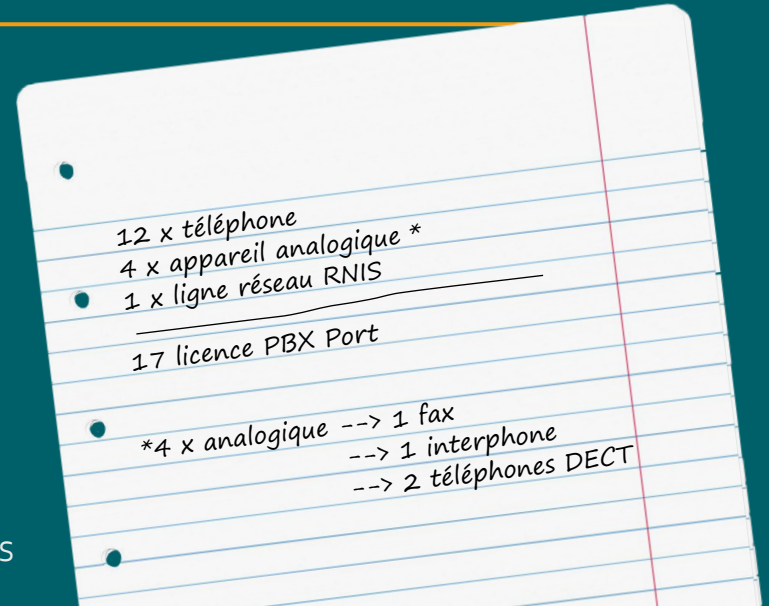 12 x téléphone
4 x appareil analogique *
1 x ligne réseau RNIS
17 licence PBX Port
*4 x analogique --> 1 fax
--> 1 interphone
--> 2 téléphones DECT
s